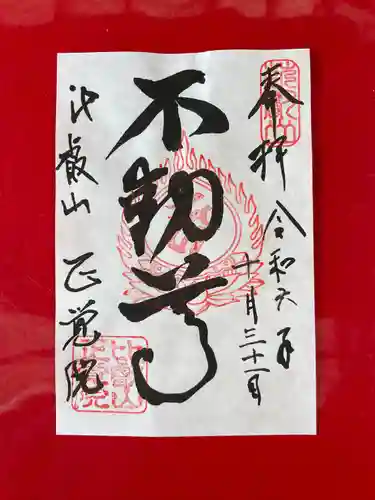 奉拝
令和六年
十月三十一日
不動尊
比叡山 正覚院